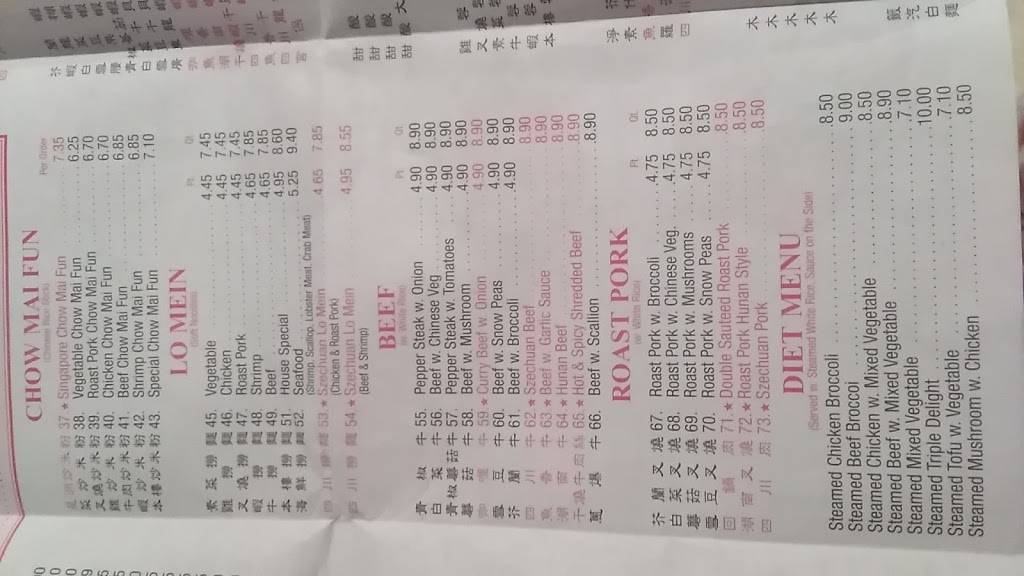 CHOW MAI FUN
(Chinese Rice Stick)
Per Order
粉 37. ★ Singapore Chow Mai Fun 7.35
菜 炒 米 粉 38. Vegetable Chow Mai Fun 6.25
叉燒炒米粉 39. Roast Pork Chow Mai Fun 6.70
雞 炒 米 粉 40. Chicken Chow Mai Fun 6.70
牛肉炒米粉 41. Beef Chow Mai Fun 6.85
蝦 炒 米 粉 42. Shrimp Chow Mai Fun 6.85
本樓炒米粉 43. Special Chow Mai Fun 7.10
LO MEIN
(Soft Noodles)
Pt. Qt.
素 菜 撈 麵 45. Vegetable 4.45 7.45
雞 撈 麵 46. Chicken 4.45 7.45
叉 燒 撈 麵 47. Roast Pork 4.45 7.45
蝦 撈 麵 48. Shrimp 4.65 7.85
牛 撈 麵 49. Beef 4.65 7.85
本 樓 撈 麵 51. House Special 4.95 8.60
海 鮮 撈 麵 52. Seafood 5.25 9.40
(Shrimp, Scallop, Lobster Meat, Crab Meat)
四 川 撈 麵 53. ★ Szechuan Lo Mein 4.65 7.85
(Chicken & Roast Pork)
四 川 撈 麵 54. ★ Szechuan Lo Mein 4.95 8.55
(Beef & Shrimp)
BEEF
(w. White Rice)
Pt. Qt.
青 椒 牛 55. Pepper Steak w. Onion 4.90 8.90
白 菜 牛 56. Beef w. Chinese Veg. 4.90 8.90
青椒蕃茄牛 57. Pepper Steak w. Tomatoes 4.90 8.90
蘑 菇 牛 58. Beef w. Mushroom 4.90 8.90
牛 59. ★ Curry Beef w. Onion 4.90 8.90
雪 豆 牛 60. Beef w. Snow Peas 4.90 8.90
芥 蘭 牛 61. Beef w. Broccoli 4.90 8.90
四 川 牛 62. ★ Szechuan Beef 8.90
魚 香 牛 63. ★ Beef w. Garlic Sauce 8.90
湖 南 牛 64. ★ Hunan Beef 8.90
干燒牛肉絲 65. ★ Hot & Spicy Shredded Beef 8.90
蔥 爆 牛 66. Beef w. Scallion 8.90
ROAST PORK
(w. White Rice)
Pt. Qt.
芥 蘭 叉 燒 67. Roast Pork w. Broccoli 4.75 8.50
白 菜 叉 燒 68. Roast Pork w. Chinese Veg. 4.75 8.50
蘑 菇 叉 燒 69. Roast Pork w. Mushrooms 4.75 8.50
雪 豆 叉 燒 70. Roast Pork w. Snow Peas 4.75 8.50
回 鍋 肉 71. ★ Double Sauteed Roast Pork 8.50
湖 南 叉 燒 72. ★ Roast Pork Hunan Style 8.50
四 川 肉 73. ★ Szechuan Pork 8.50
DIET MENU
(Served in Steamed White Rice, Sauce on the Side)
Steamed Chicken Broccoli 8.50
Steamed Beef Broccoi 9.00
Steamed Chicken w. Mixed Vegetable 8.50
Steamed Beef w. Mixed Vegetable 8.90
Steamed Mixed Vegetable 7.10
Steamed Triple Delight 10.00
Steamed Tofu w. Vegetable 7.10
Steamed Mushroom w. Chicken 8.50